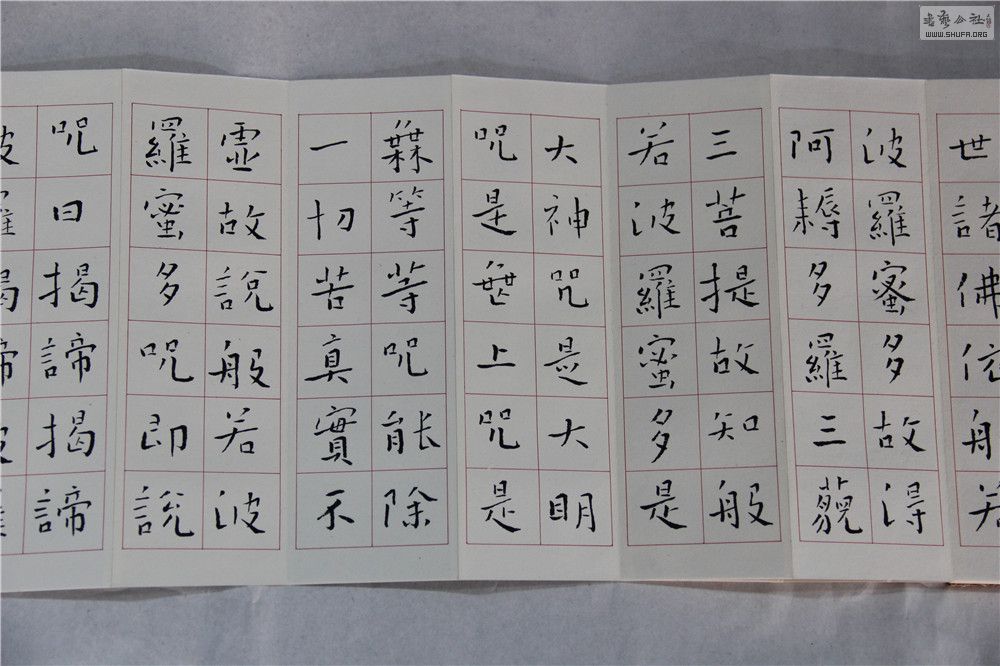 世諸佛依般若
波羅蜜多故得
阿耨多羅三藐
三菩提故知般
若波羅蜜多是
大神呪是大明
呪是無上呪是
無等等呪能除
一切苦真實不
虛故說般若波
羅蜜多呪即說
呪曰揭諦揭諦
波羅揭諦波羅
書藝公社
WWW.SHUFA.ORG